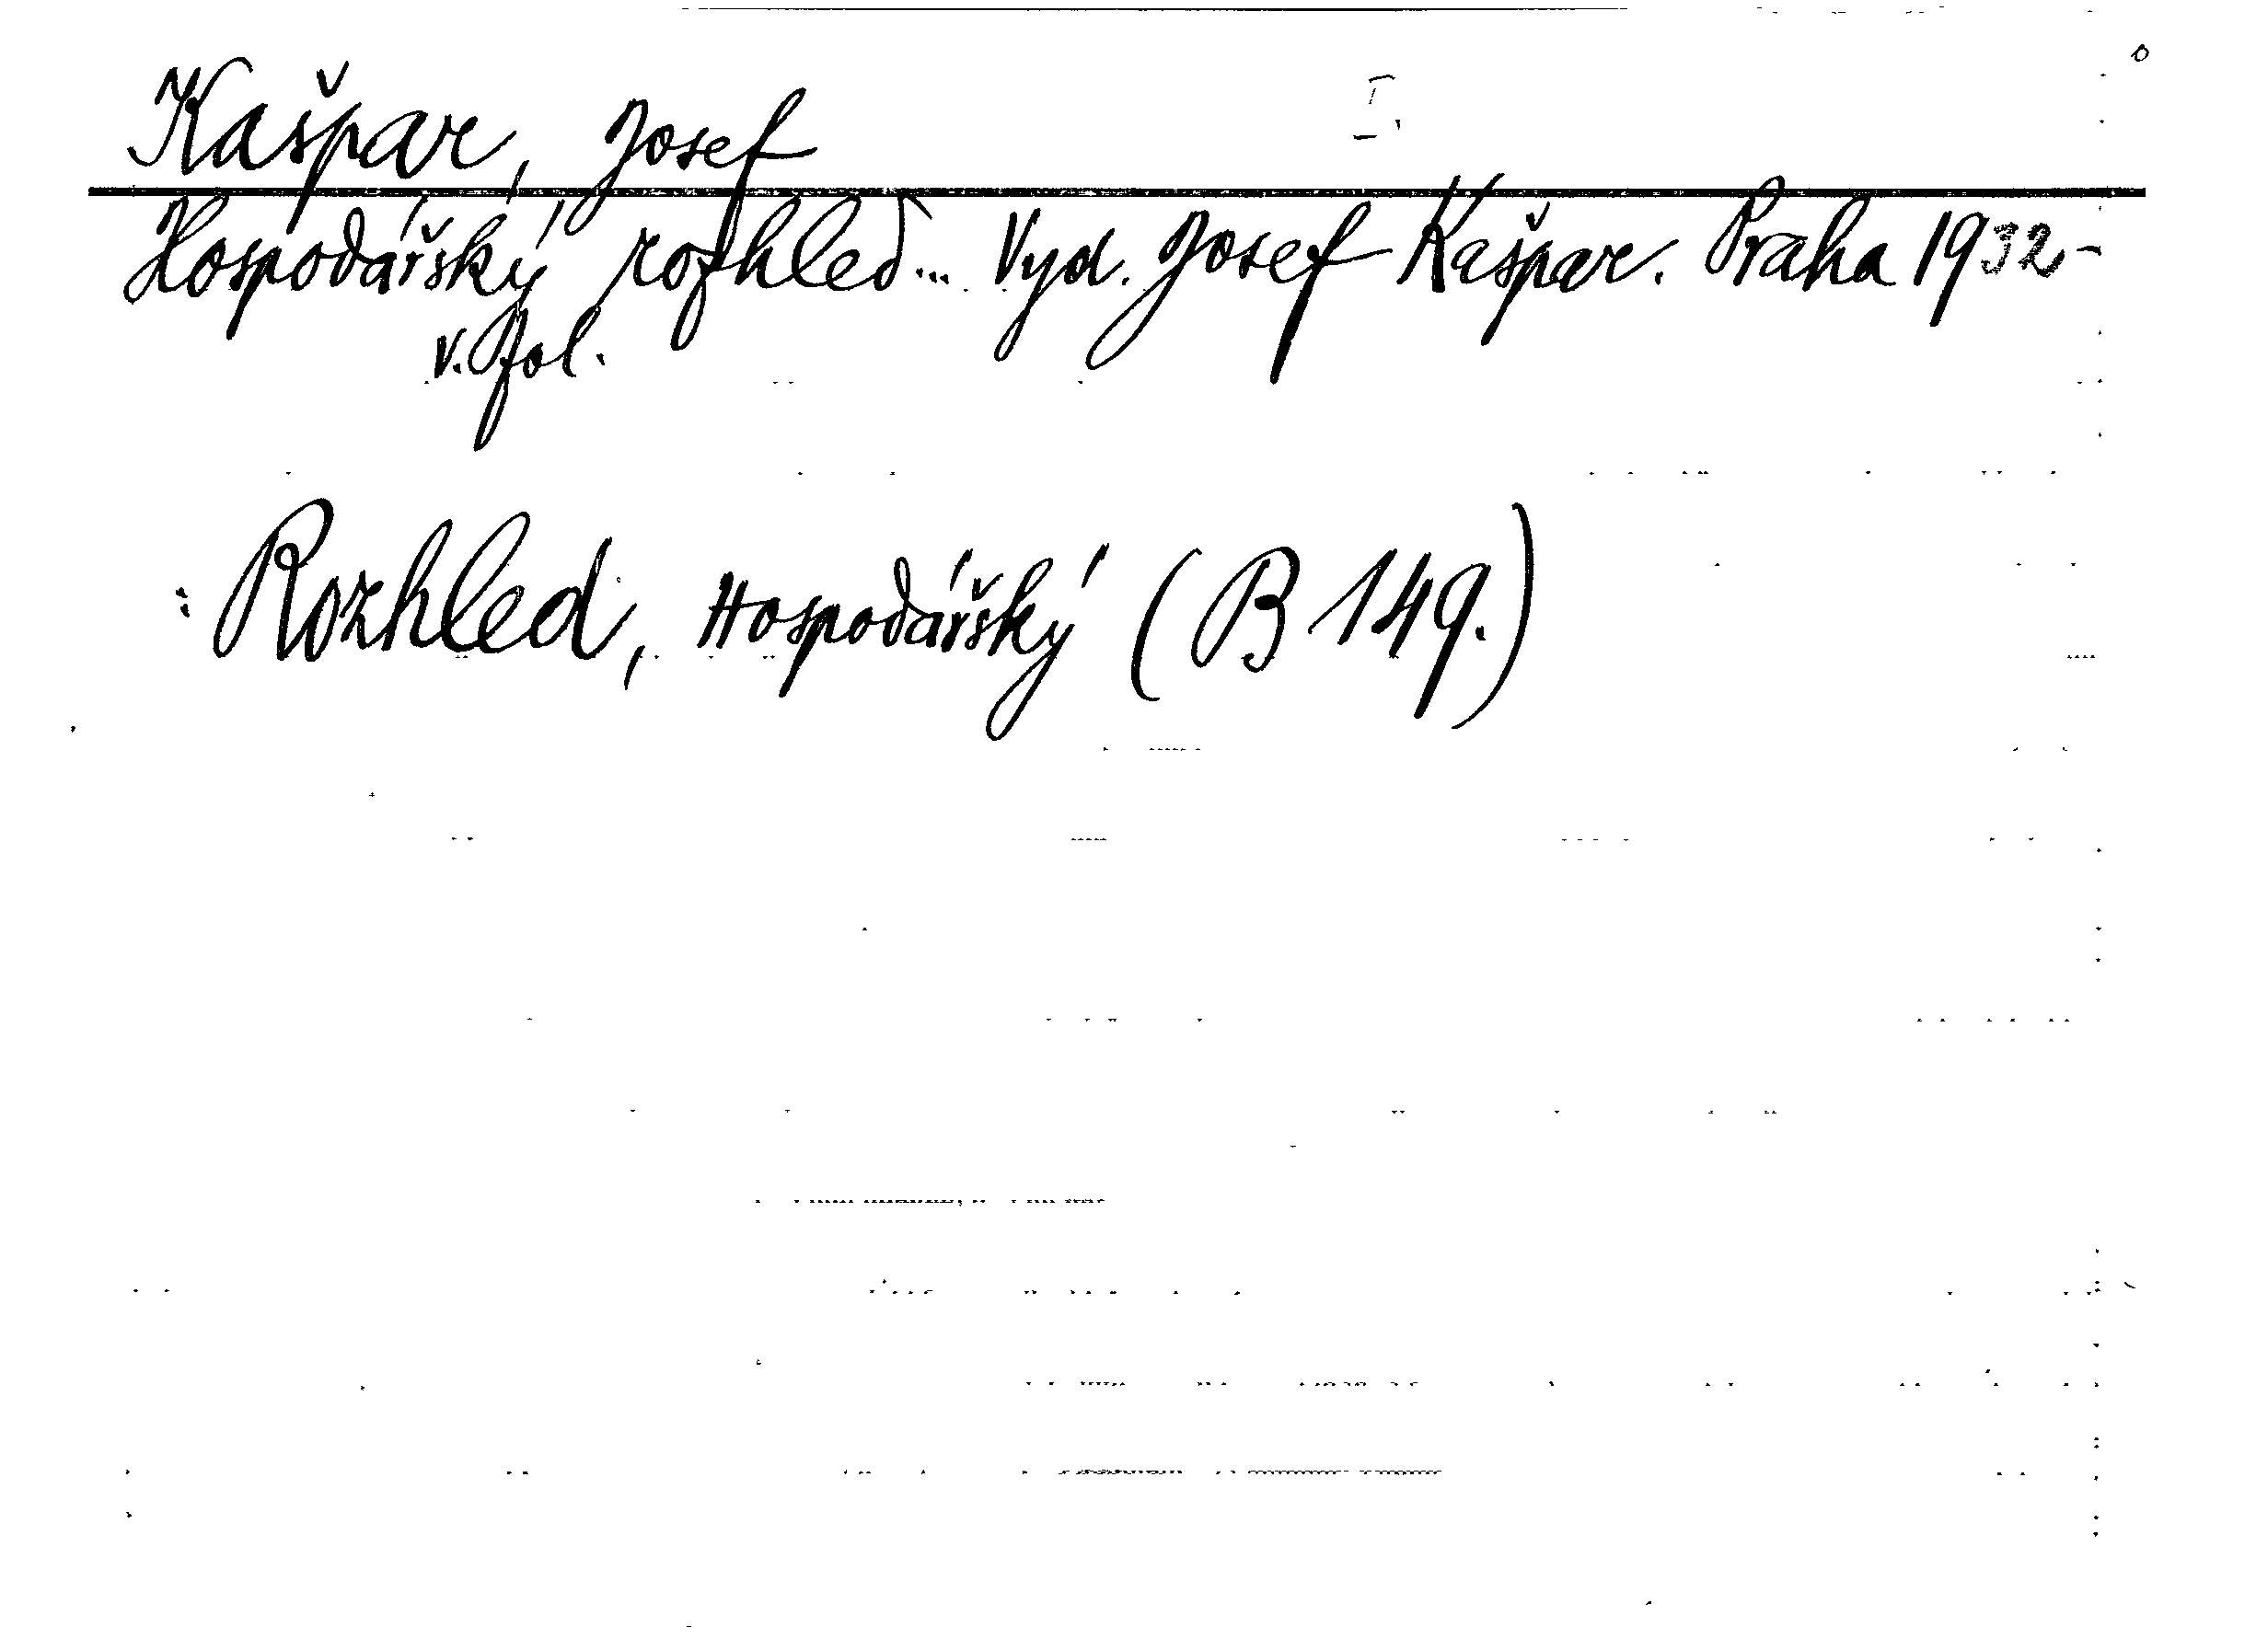 Kašpar, Josef I.
Hospodářský rozhled... Vyd. Josef Kašpar. Praha 1932-
v. fol.
: Rozhled, Hospodářský (B 149.)